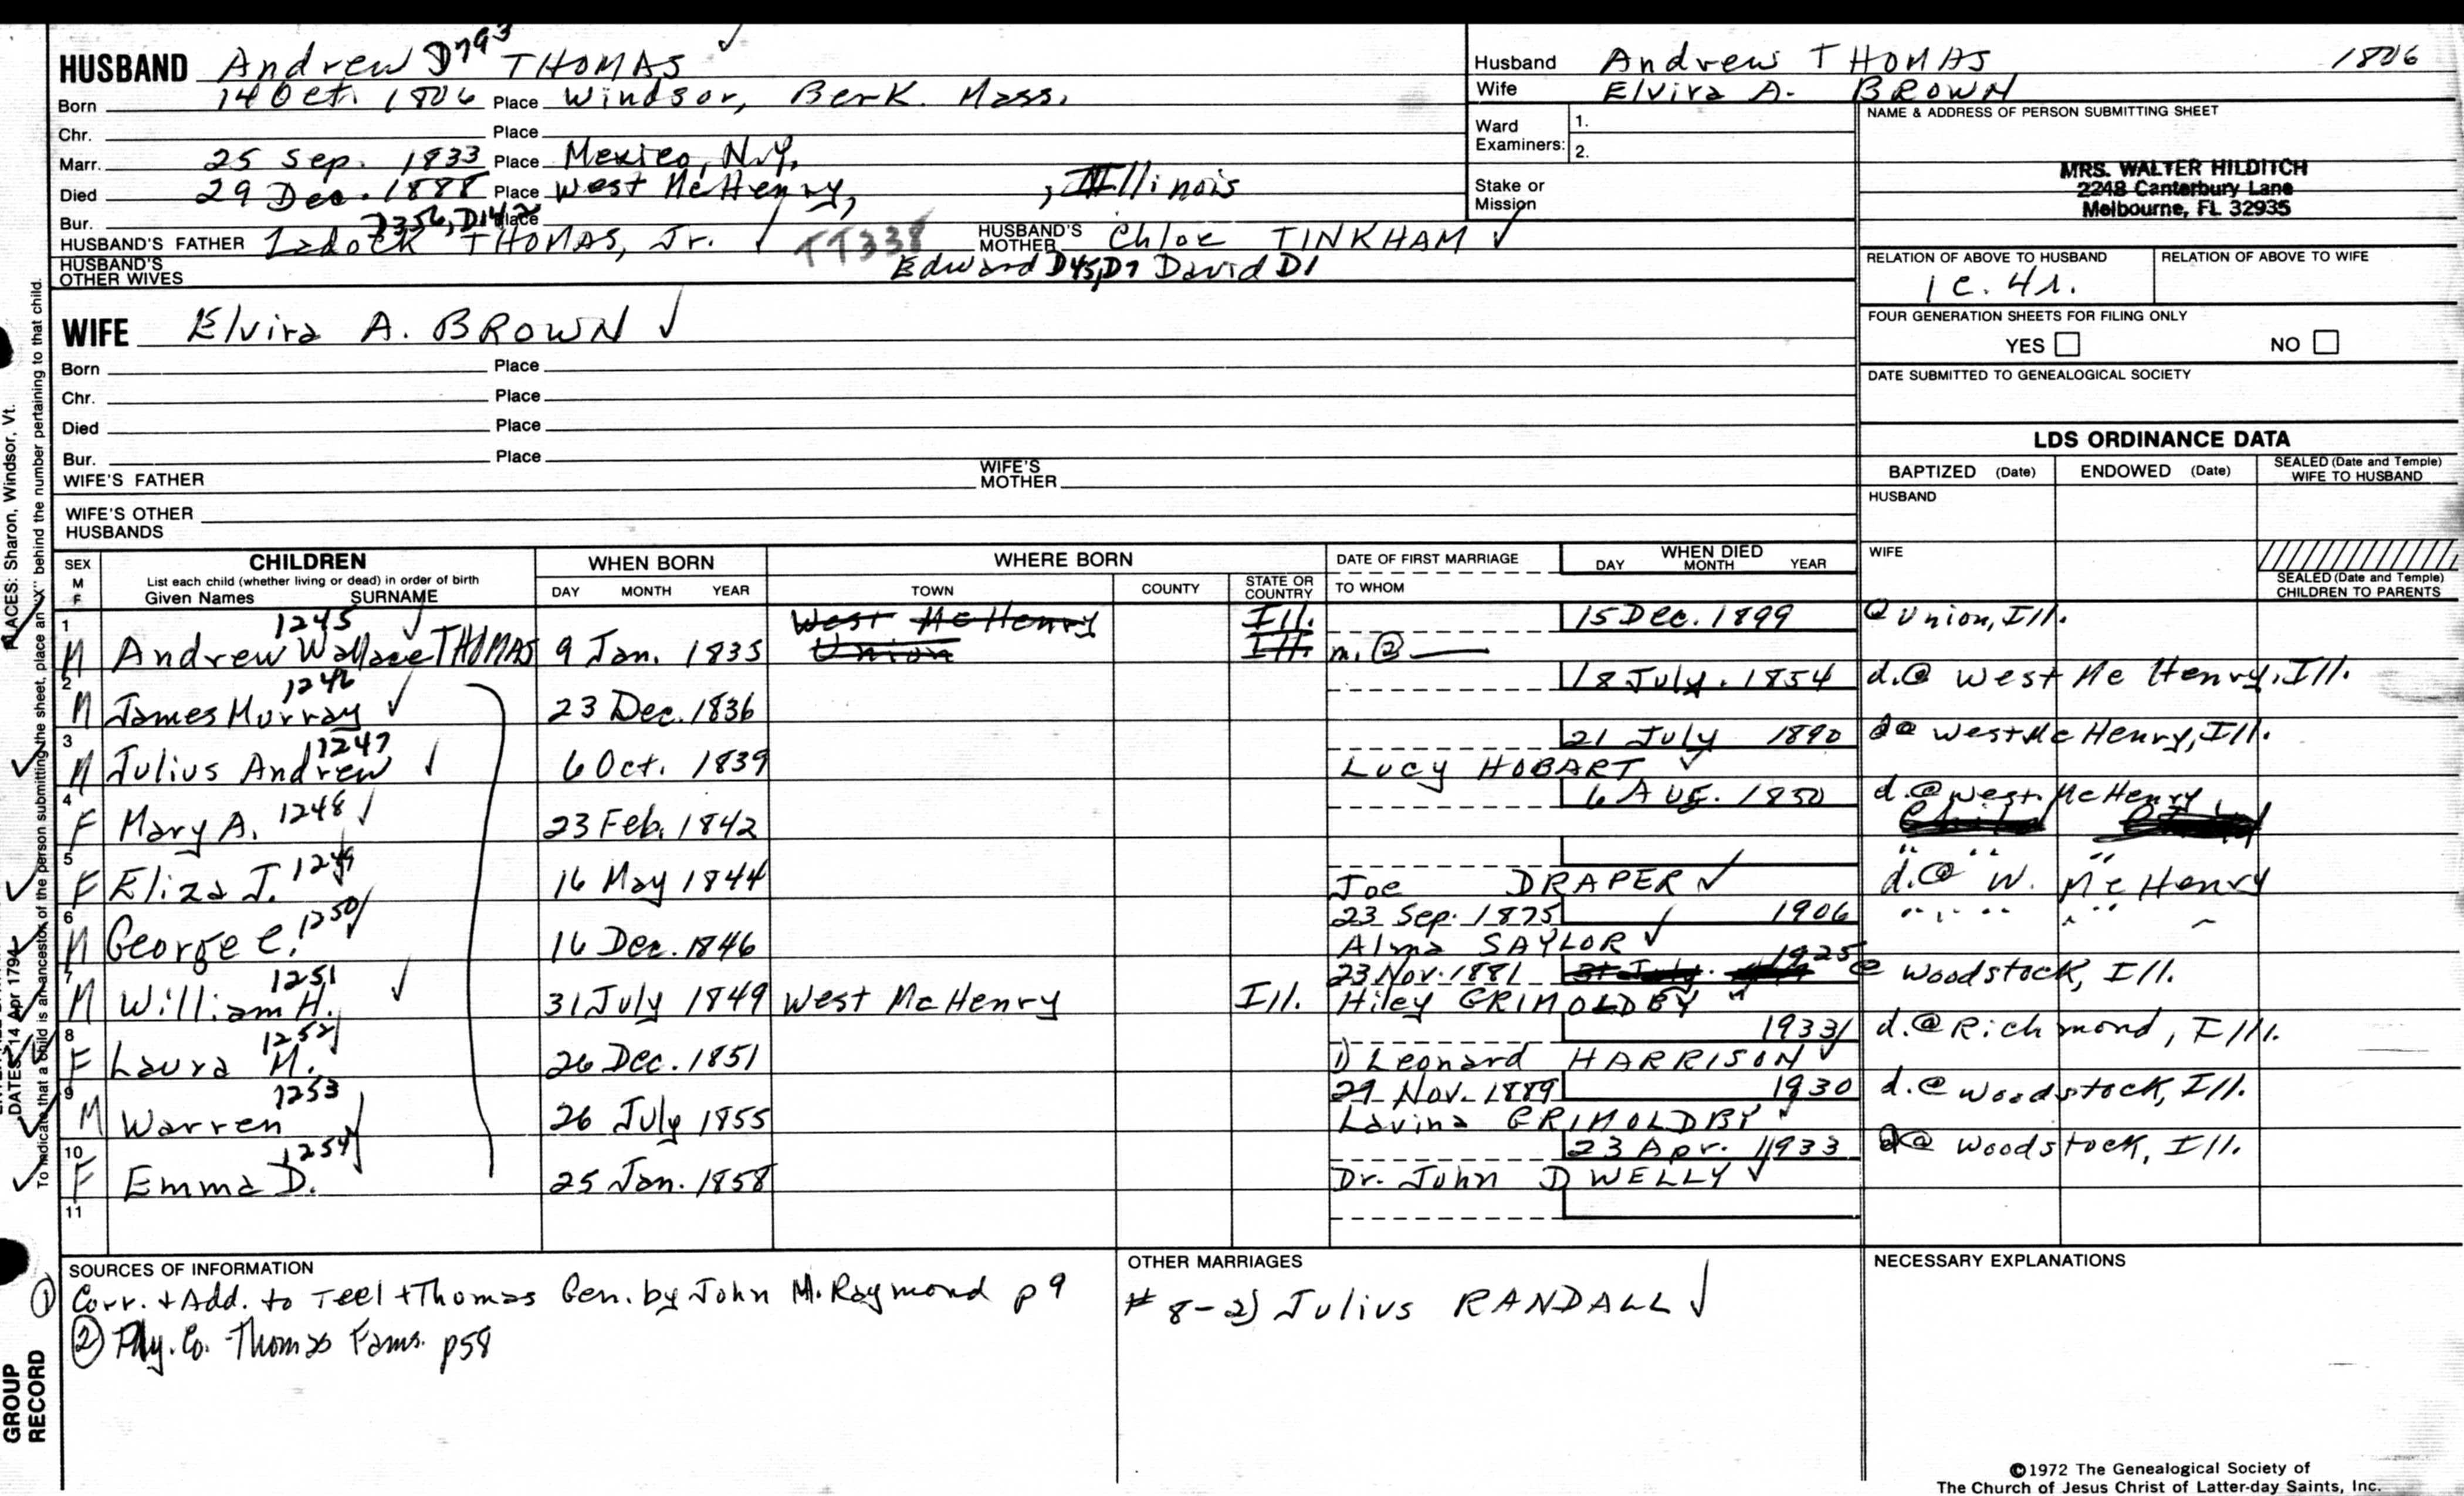 HUSBAND Andrew D793 THOMAS ✓
Born 14 Oct. 1806 Place Windsor, Berk. Mass.
Chr. Place
Marr. 25 Sep. 1833 Place Mexico, N.Y.
Died 29 Dec. 1888 Place West McHenry, , Illinois
Bur. Place
D356, D142
HUSBAND'S FATHER Zadock THOMAS, Jr. ✓ TT338 HUSBAND'S MOTHER Chloe TINKHAM ✓
HUSBAND'S OTHER WIVES Edward D45, D7 David D1
Husband Andrew THOMAS 1806
Wife Elvira A. BROWN
Ward Examiners: 1.
2.
Stake or Mission
NAME & ADDRESS OF PERSON SUBMITTING SHEET
MRS. WALTER HILDITCH
2248 Canterbury Lane
Melbourne, FL 32935
RELATION OF ABOVE TO HUSBAND RELATION OF ABOVE TO WIFE
1c. 4r.
FOUR GENERATION SHEETS FOR FILING ONLY
YES NO
DATE SUBMITTED TO GENEALOGICAL SOCIETY
WIFE Elvira A. BROWN ✓
Born Place
Chr. Place
Died Place
Bur. Place
WIFE'S FATHER WIFE'S MOTHER
WIFE'S OTHER HUSBANDS
LDS ORDINANCE DATA
BAPTIZED (Date) ENDOWED (Date) SEALED (Date and Temple) WIFE TO HUSBAND
HUSBAND
WIFE
SEALED (Date and Temple) CHILDREN TO PARENTS
SEX M F CHILDREN WHEN BORN WHERE BORN DATE OF FIRST MARRIAGE WHEN DIED
List each child (whether living or dead) in order of birth
Given Names SURNAME DAY MONTH YEAR TOWN COUNTY STATE OR COUNTRY TO WHOM DAY MONTH YEAR
1 1245 ✓ West McHenry Ill. 15 Dec. 1899 @ Union, Ill.
M Andrew Wallace THOMAS 9 Jan. 1835 Union Ill. m. @
2 1246 18 July. 1854 d.@ West Mc Henry, Ill.
M James Murray ✓ 23 Dec. 1836
3 1247 21 July 1890 d@ West Mc Henry, Ill.
M Julius Andrew ✓ 6 Oct. 1839 Lucy HOBART ✓
4 6 Aug. 1850 d.@ West. McHenry
F Mary A. 1248 ✓ 23 Feb. 1842
5 " " "
F Eliza J. 1249 16 May 1844 Joe DRAPER ✓ d.@ W. Mc Henry
6 1250 23 Sep. 1875 1906 " " " " "
M George C. 16 Dec. 1846 Alma SAYLOR ✓
7 1251 23 Nov. 1881 1925 @ Woodstock, Ill.
M William H. ✓ 31 July 1849 West McHenry Ill. Hiley GRIMOLDBY
8 1252 1933 d.@ Richmond, Ill.
F Laura M. 26 Dec. 1851 1) Leonard HARRISON ✓
9 1253 29 Nov. 1889 1930 d.@ Woodstock, Ill.
M Warren 26 July 1855 Lavina GRIMOLDBY ✓
10 1254 23 Apr. 1933 d@ Woodstock, Ill.
F Emma D. 25 Jan. 1858 Dr. John DWELLY ✓
11
SOURCES OF INFORMATION
① Corr. + Add. to Teel + Thomas Gen. by John M. Raymond p 9
② Ply. Co. Thomas Fams. p58
OTHER MARRIAGES
# 8-2) Julius RANDALL ✓
NECESSARY EXPLANATIONS
©1972 The Genealogical Society of
The Church of Jesus Christ of Latter-day Saints, Inc.
PLACES: Sharon, Windsor, Vt.
DATES: 14 Apr 1794
To indicate that a child is an ancestor of the person submitting the sheet, place an "X" behind the number pertaining to that child.
GROUP
RECORD